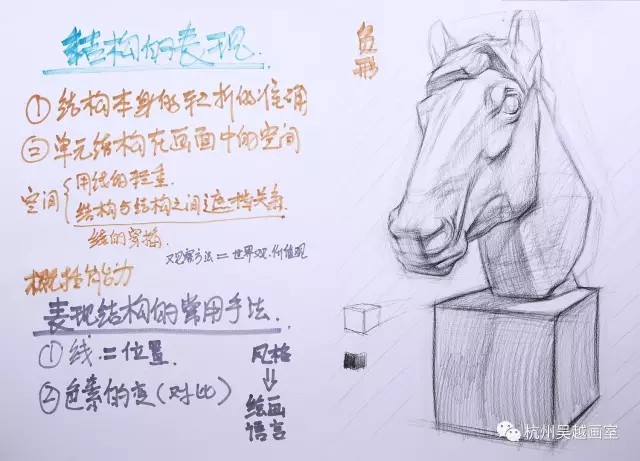 结构的表现.
①结构本身的转折的准确
②单元结构在画面中的空间
空间 { 用线的轻重.
结构与结构之间遮挡关系.
线的穿插.
又观察方法=世界观.价值观
概括能力
表现结构的常用手法.
①线=位置.
②色素的变(对比)
风格
⇓
绘画
语言
负
形
杭州吴越画室